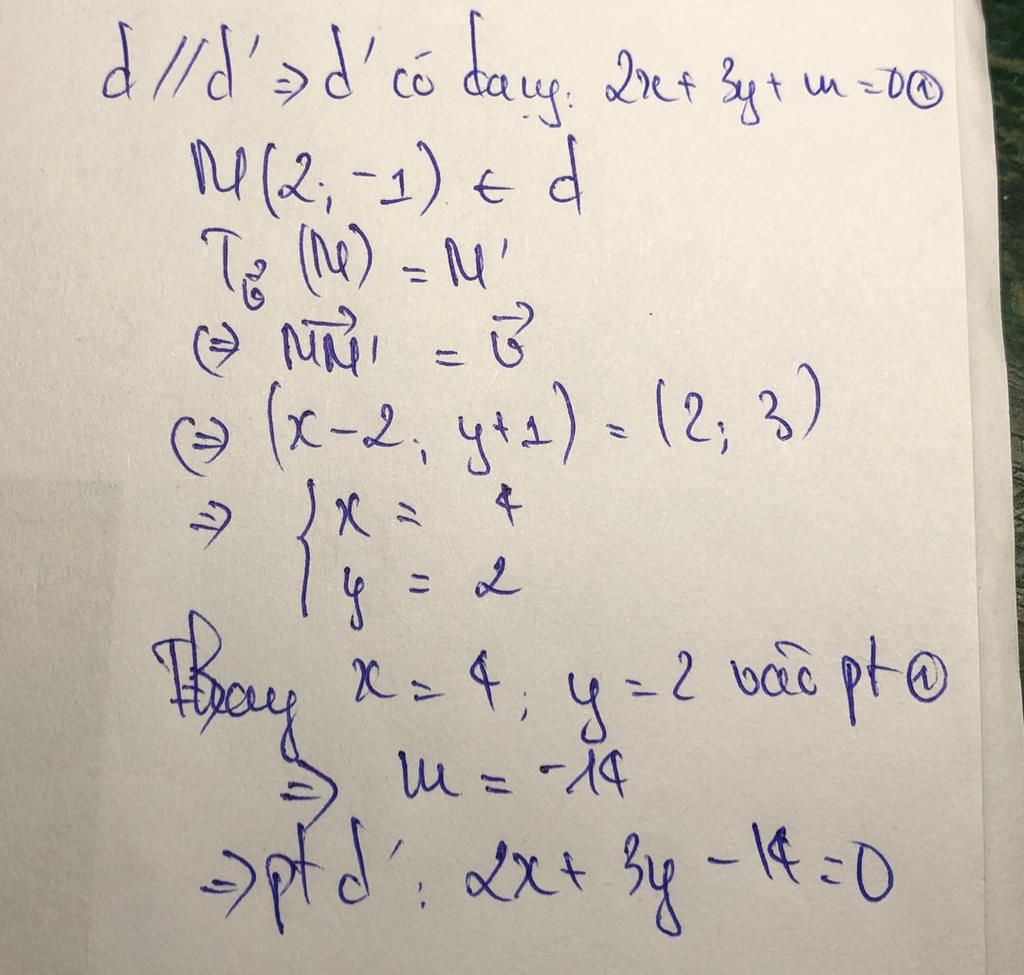 d // d' => d' có dạng: 2x + 3y + m = 0 ①
M(2; -1) ∈ d
T_v⃗ (M) = M'
<=> MM'⃗ = v⃗
<=> (x-2; y+1) = (2; 3)
=> { x = 4
y = 2
Thay x = 4; y = 2 vào pt ①
=> m = -14
=> pt d': 2x + 3y - 14 = 0